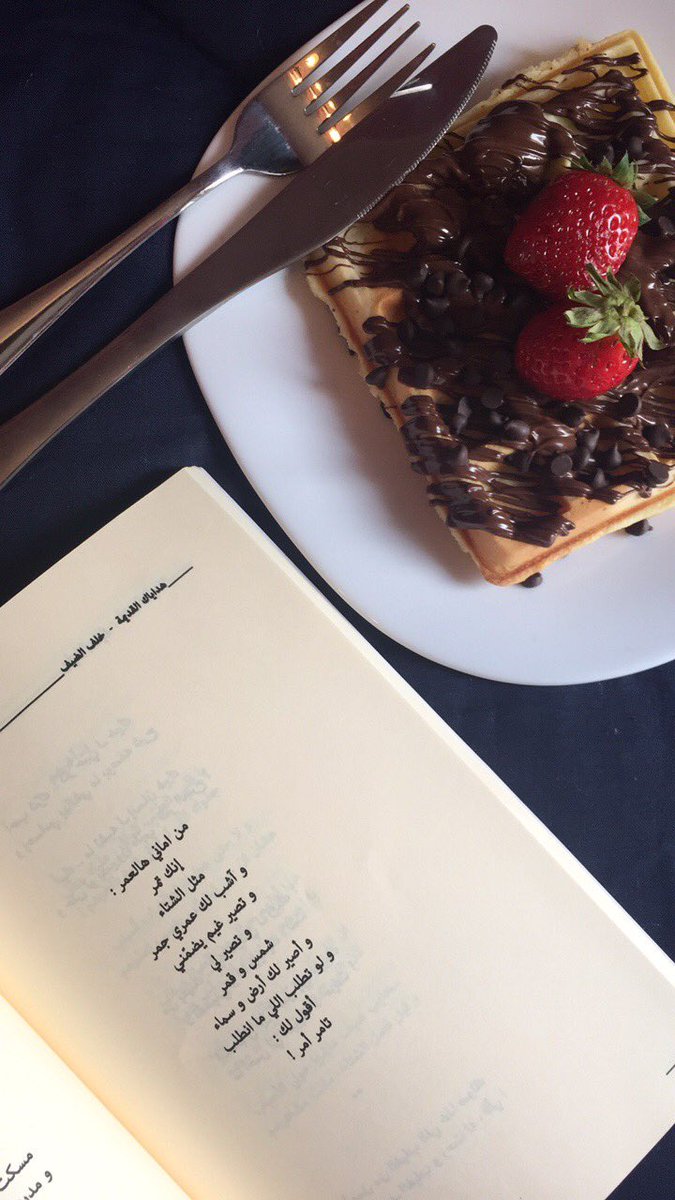 هداياك القديمة - خلف الضيف
من اماني هالعمر :
إنك تمر
مثل الشتاء
و آشب لك عمري جمر
و تصير غيم يضمّني
و تصير لي
شمس و قمر
و أصير لك أرض و سماء
و لو تطلب اللي ما انطلب
أقول لك :
تامر أمر !
مسكت